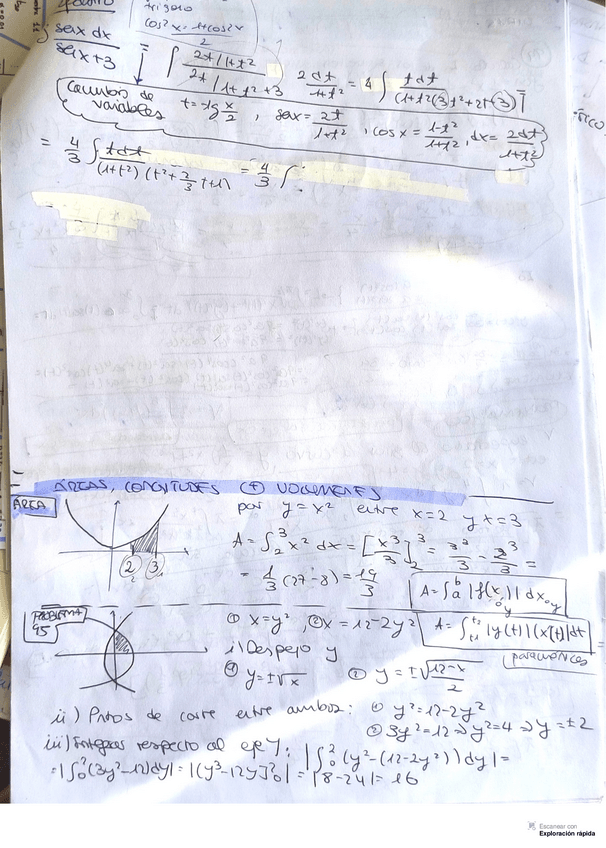 cos²x = 1+cos2x / 2
∫ senx dx / senx+3 = ∫ 2t/1+t² / 2t/1+t²+3 2dt/1+t² = 4∫ tdt / (1+t²)(3t²+2t+3)
Cambios de variables t=tg x/2, senx = 2t/1+t², cosx = 1-t²/1+t², dx = 2dt/1+t²
= 4/3 ∫ tdt / (1+t²)(t²+2/3t+1) = 4/3 ∫
ÁREAS, LONGITUDES (+) VOLUMENES
ÁREA por y = x² entre x=2 y x=3
A = ∫₂³ x² dx = [x³/3]₂³ = 3³/3 - 2³/3 =
2 3 = 1/3 (27-8) = 19/3
A = ∫ₐᵇ |f(x)| dx
PROBLEMA 95 ① x=y², ② x = 12-2y²
A = ∫ |y(t)| |x'(t)| dt
i) Despejo y
parametricas
① y = ±√x ② y = ±√12-x/2
ii) Ptos de corte entre ambos: ① y² = 12-2y²
② 3y² = 12 ⇒ y² = 4 ⇒ y = ±2
iii) Integras respecto al eje Y: |∫₀² (y²-(12-2y²)) dy| =
= |∫₀² (3y²-12) dy| = |(y³-12y]₀²| = |8-24| = 16
Escanear con
Exploración rápida